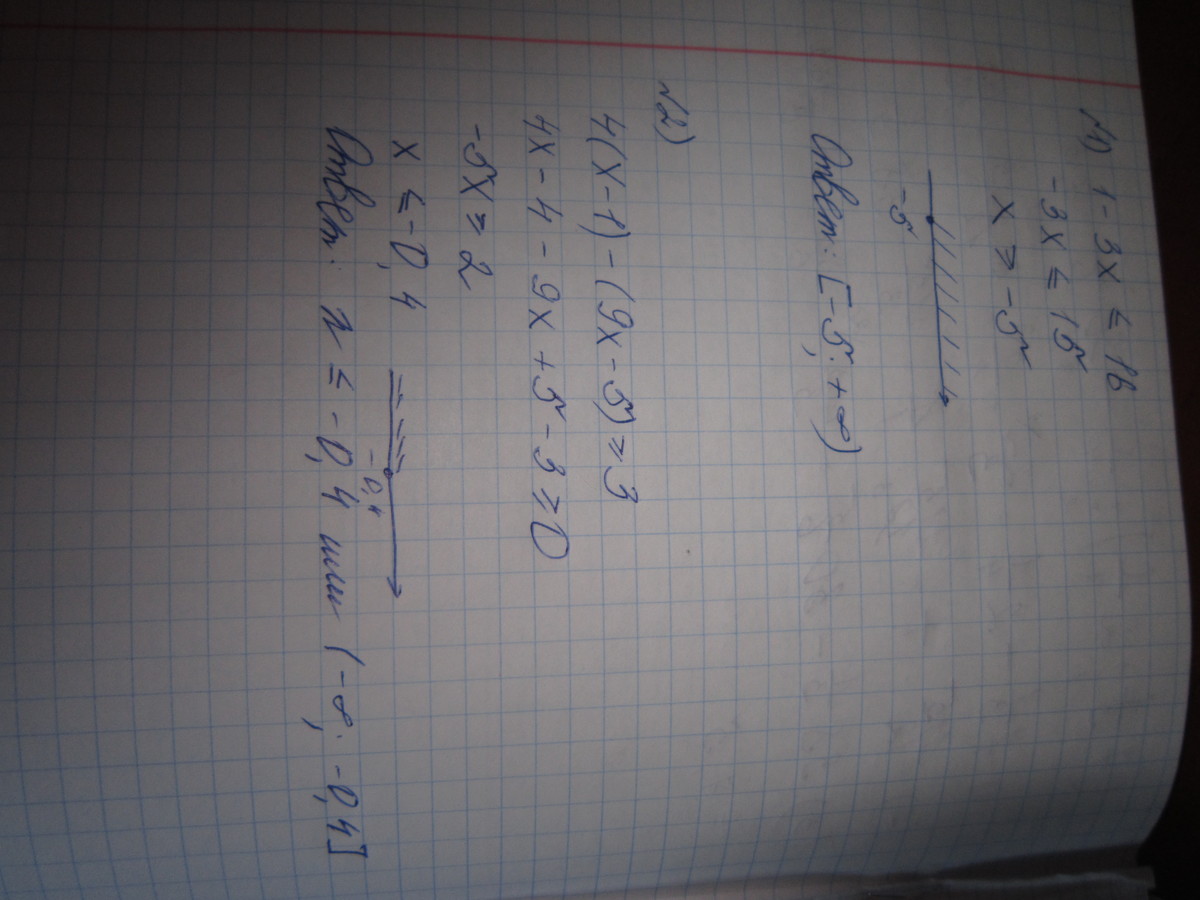 №1) 1 - 3x ≤ 16
-3x ≤ 15
x ≥ -5
-5
Ответ: [-5; +∞)
№2)
4(x-1) - (9x-5) ≥ 3
4x - 4 - 9x + 5 - 3 ≥ 0
-5x ≥ 2
x ≤ -0,4
-0,4
Ответ: x ≤ -0,4 или (-∞; -0,4]